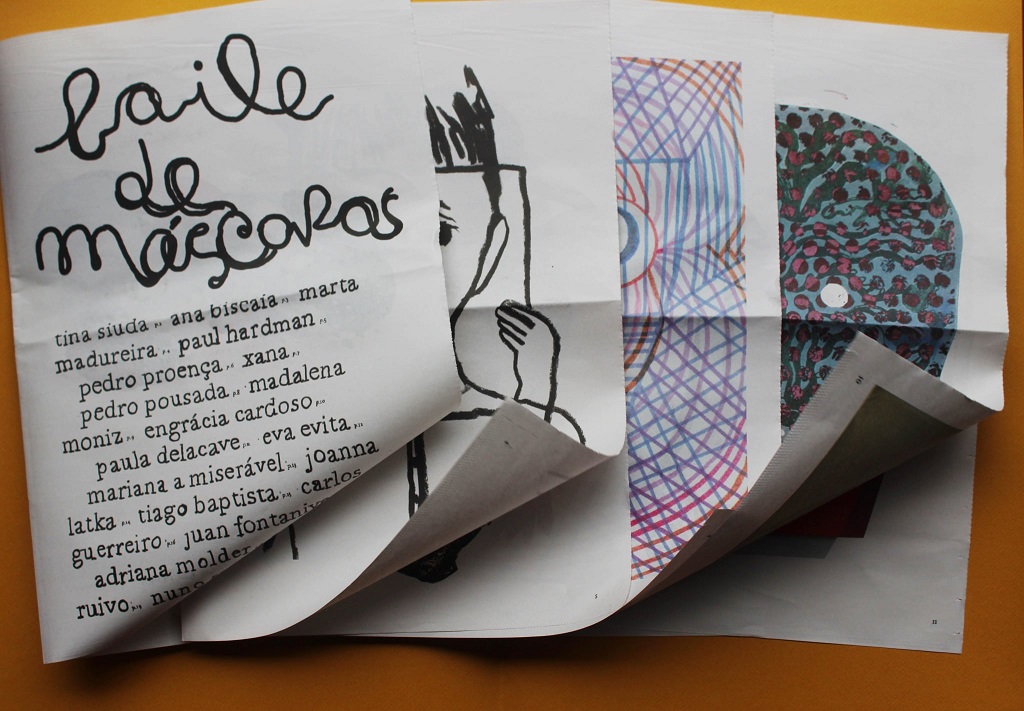 baile
de
máscaras
tina siuda ana biscaia marta
madureira paul hardman
pedro proença xana
pedro pousada madalena
moniz engrácia cardoso
paula delacave eva evita
mariana a miserável joanna
latka tiago baptista carlos
guerreiro juan
adriana molder
ruivo